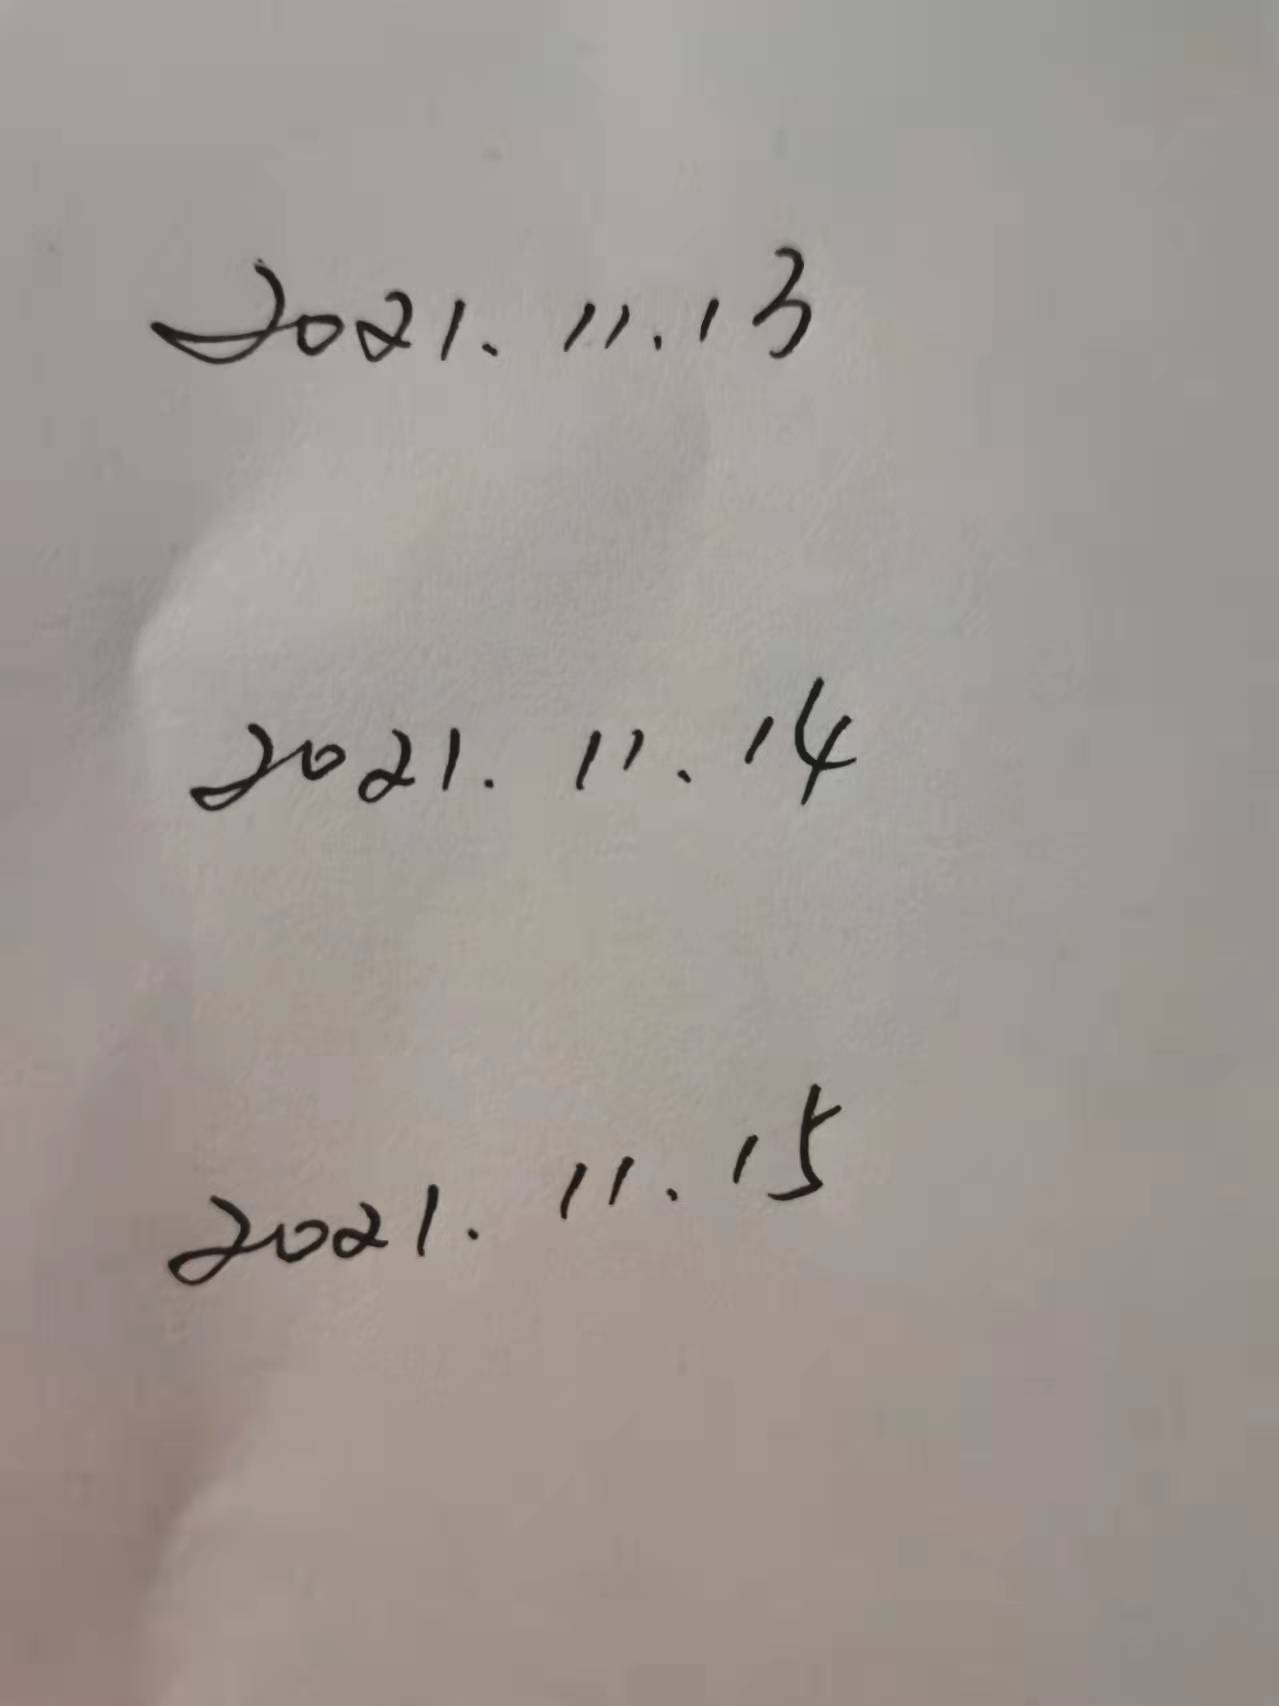 2021.11.13
2021.11.14
2021.11.15